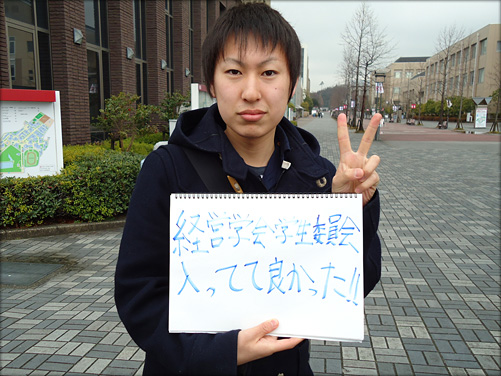 経営学会学生委員会
入ってて良かった!!